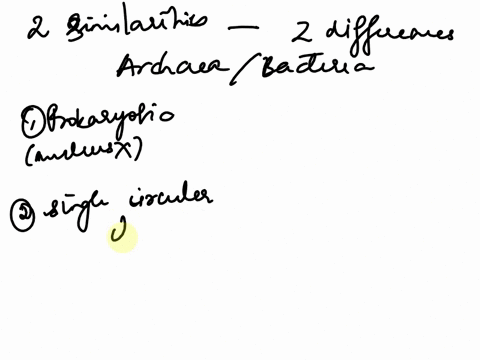 2 similarities — 2 differences
Archaea/Bacteria
① Prokaryotic
(nucleus X)
② single circular